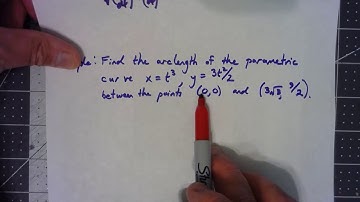 ple: Find the arclength of the parametric
curve x = t³ y = 3t²/2
between the points (0,0) and (3√3, 9/2).